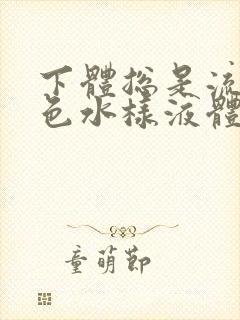 下體總是流
色水樣液體
童萌節